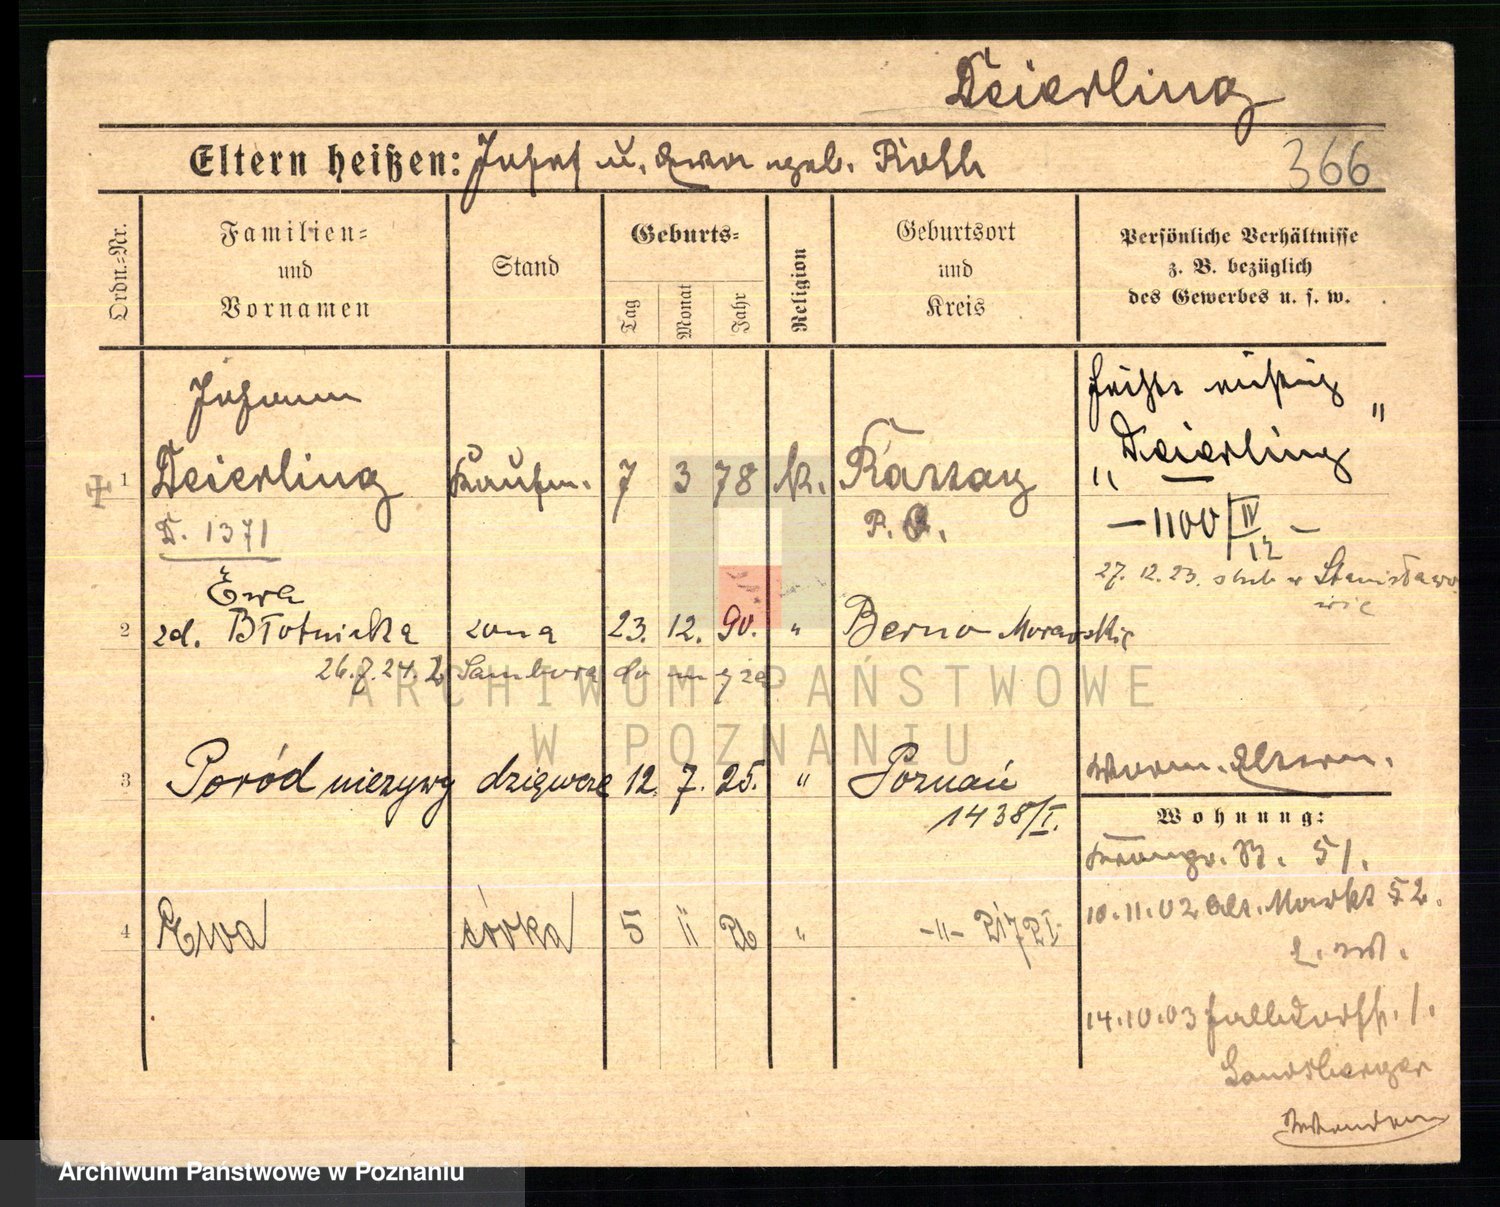 Deierling
Eltern heißen: Josef u. Ewa geb. Roth
366
Ordn.-Nr.
Familien-
und
Vornamen
Stand
Geburts-
Tag
Monat
Jahr
Religion
Geburtsort
und
Kreis
Persönliche Verhältnisse
z. B. bezüglich
des Gewerbes u. s. w.
Johann
1 Deierling Kaufm. 7 3 78 k.
D. 1371
heißt richtig
„Deierling"
— 1100 IV/12 —
27.12.23. ślub w Stanisławo
wie
Ewa
2 zd. Błotnicka żona 23. 12. 90. " Berno Morawskie
26.7.24. z Sambora do męża
3 Poród nieżywy dziewcze 12. 7. 25. " Poznań
1438/I.
4 Ewa córka 5 11 26 " -"-
Wohnung:
51.
10.11.02 Alt. Markt 52.
14.10.03
Landsberger
ARCHIWUM PAŃSTWOWE
W POZNANIU
Archiwum Państwowe w Poznaniu